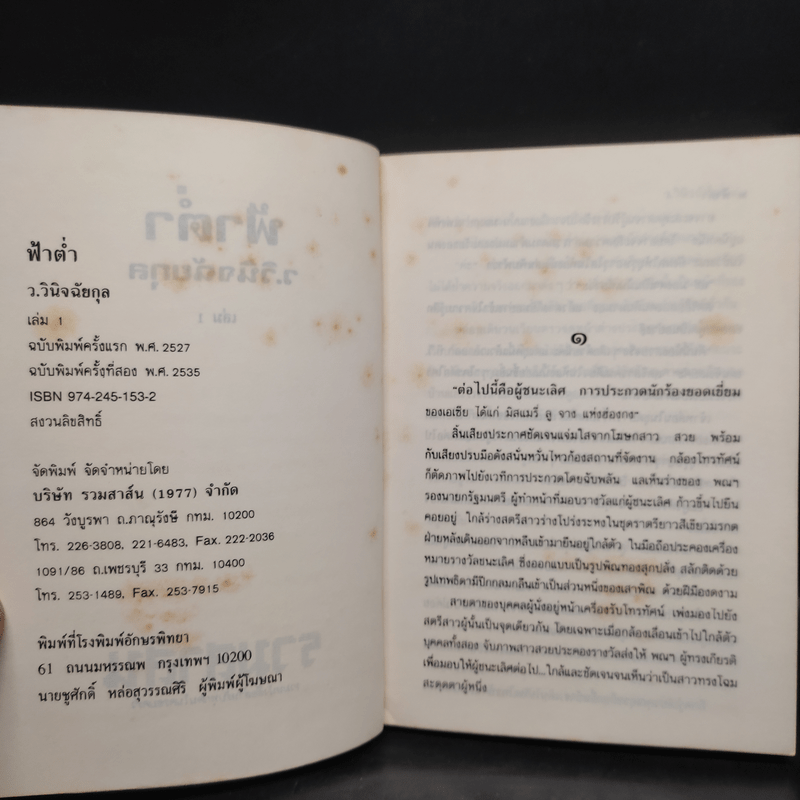 ฟ้าต่ำ
ว.วินิจฉัยกุล
เล่ม 1
ฉบับพิมพ์ครั้งแรก พ.ศ. 2527
ฉบับพิมพ์ครั้งที่สอง พ.ศ. 2535
ISBN 974-245-153-2
สงวนลิขสิทธิ์
จัดพิมพ์ จัดจำหน่ายโดย
บริษัท รวมสาส์น (1977) จำกัด
864 วังบูรพา ถ.ภาณุรังษี กทม. 10200
โทร. 226-3808, 221-6483, Fax. 222-2036
1091/86 ถ.เพชรบุรี 33 กทม. 10400
โทร. 253-1489, Fax. 253-7915
พิมพ์ที่โรงพิมพ์อักษรพิทยา
61 ถนนมหรรณพ กรุงเทพฯ 10200
นายชูศักดิ์ หล่อสุวรรณศิริ ผู้พิมพ์ผู้โฆษณา
๑
"ต่อไปนี้คือผู้ชนะเลิศ การประกวดนักร้องยอดเยี่ยม
ของเอเชีย ได้แก่ มิสแมรี่ ลู จาง แห่งฮ่องกง"
สิ้นเสียงประกาศชัดเจนแจ่มใสจากโฆษกสาว สวย พร้อม
กับเสียงปรบมือดังสนั่นหวั่นไหวก้องสถานที่จัดงาน กล้องโทรทัศน์
ก็ตัดภาพไปยังเวทีการประกวดโดยฉับพลัน แลเห็นร่างของ พณฯ
รองนายกรัฐมนตรี ผู้ทำหน้าที่มอบรางวัลแก่ผู้ชนะเลิศ ก้าวขึ้นไปยืน
คอยอยู่ ใกล้ร่างสตรีสาวร่างโปร่งระหงในชุดราตรียาวสีเขียวมรกต
ฝ่ายหลังเดินออกจากหลืบเข้ามายืนอยู่ใกล้ตัว ในมือประคองเครื่อง
หมายรางวัลชนะเลิศ ซึ่งออกแบบเป็นรูปพิณทองสุกปลั่ง สลักติดด้วย
รูปเทพธิดามีปีกกลมกลืนเข้าเป็นส่วนหนึ่งของเสาพิณ ด้วยฝีมืองดงาม
สายตาของบุคคลผู้นั่งอยู่หน้าเครื่องรับโทรทัศน์ เพ่งมองไปยัง
สตรีสาวผู้นั้นเป็นจุดเดียวกัน โดยเฉพาะเมื่อกล้องเลื่อนเข้าไปใกล้ตัว
บุคคลทั้งสอง จับภาพสาวสวยประคองรางวัลส่งให้ พณฯ ผู้ทรงเกียรติ
เพื่อมอบให้ผู้ชนะเลิศต่อไป...ใกล้และชัดเจนจนเห็นว่าเป็นสาวทรงโฉม
สะดุดตาผู้หนึ่ง